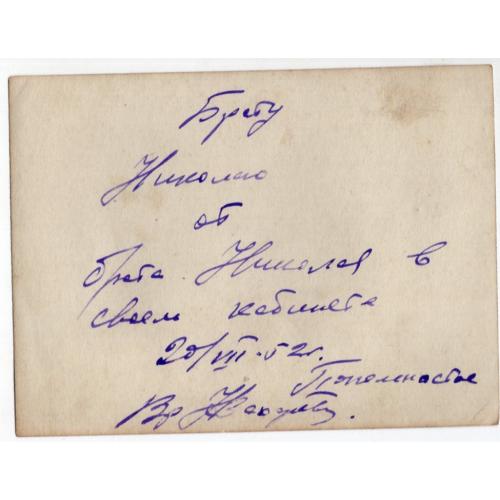 Брату
Николаю
от
брата Николая в
своем кабинете
20/VIII-52г.
Вр